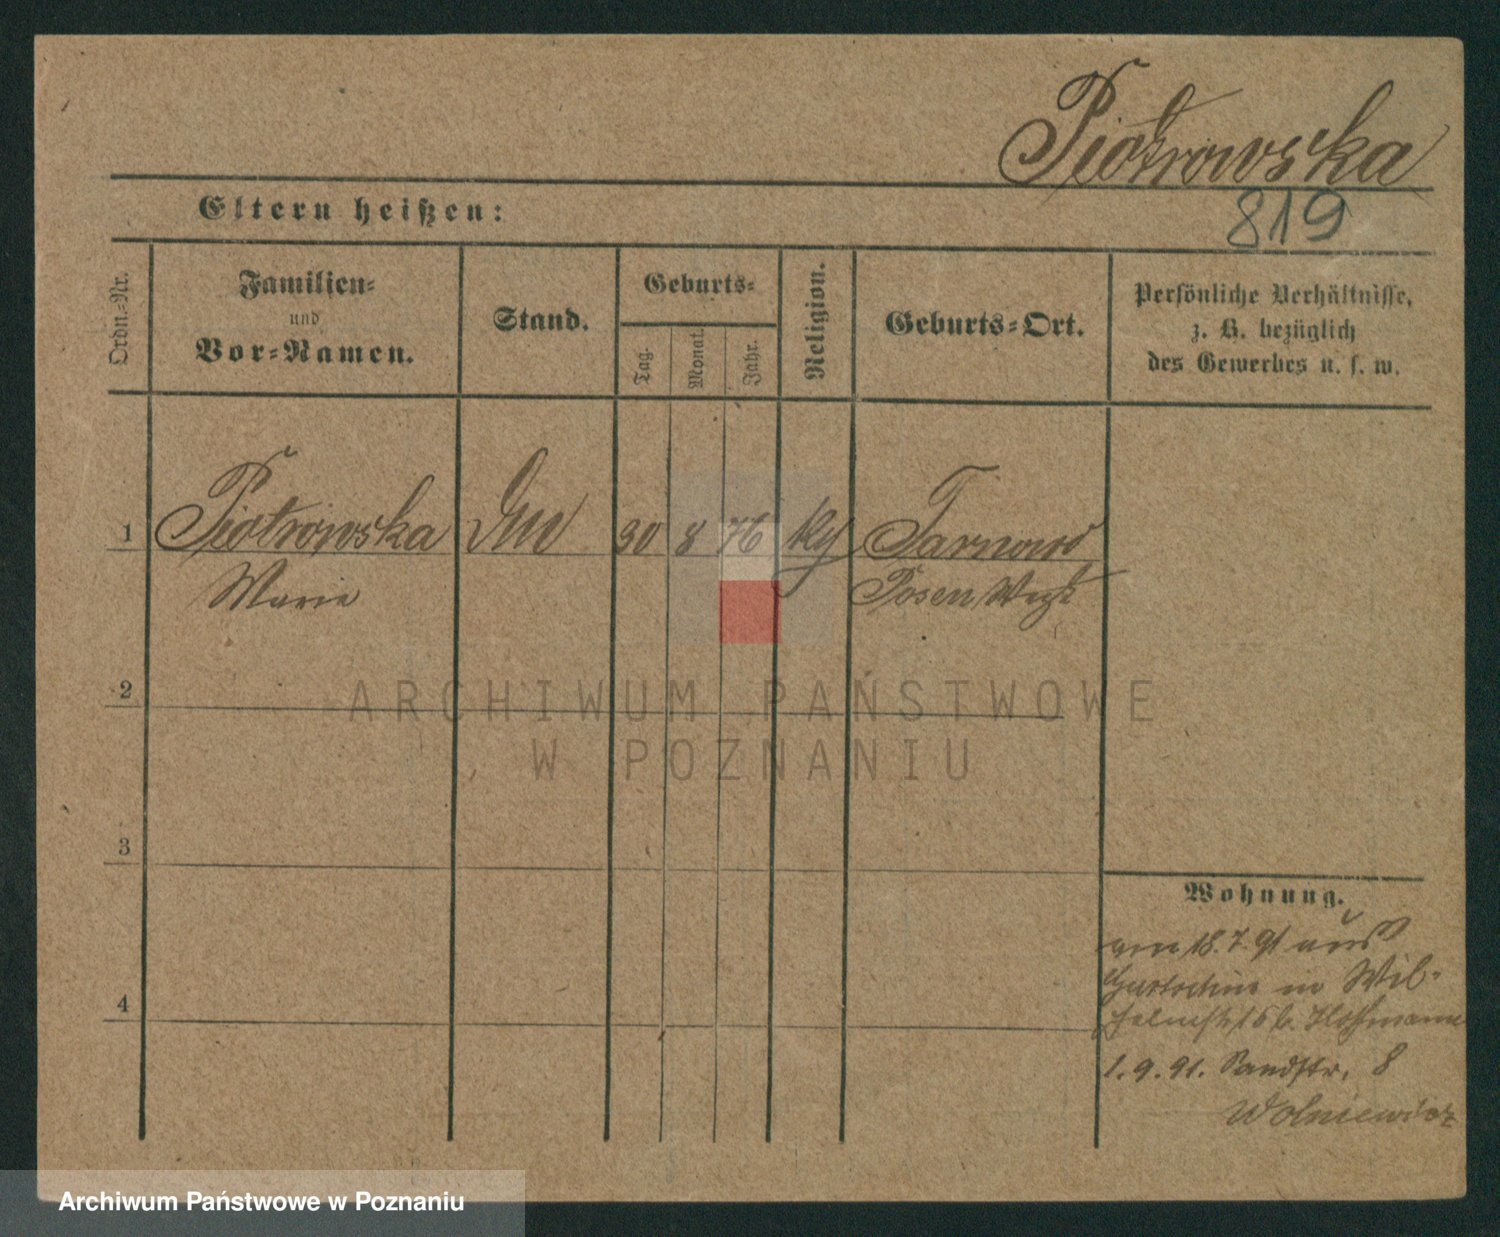 Piotrowska
819
Eltern heißen:
Ordn.-Nr.
Familien-
und
Vor-Namen.
Stand.
Geburts-
Tag.
Monat.
Jahr.
Religion.
Geburts-Ort.
Persönliche Verhältnisse,
z. B. bezüglich
des Gewerbes u. s. w.
1 Piotrowska 30 8 76 Tarnowo
Marie Posen West
2
ARCHIWUM PAŃSTWOWE
W POZNANIU
3
4
Wohnung.
am 18.7.91 aus
in Wil-
helmstr. 16 b. Hoffmann
1.9.91. Sandstr. 8
Wolniewicz
Archiwum Państwowe w Poznaniu